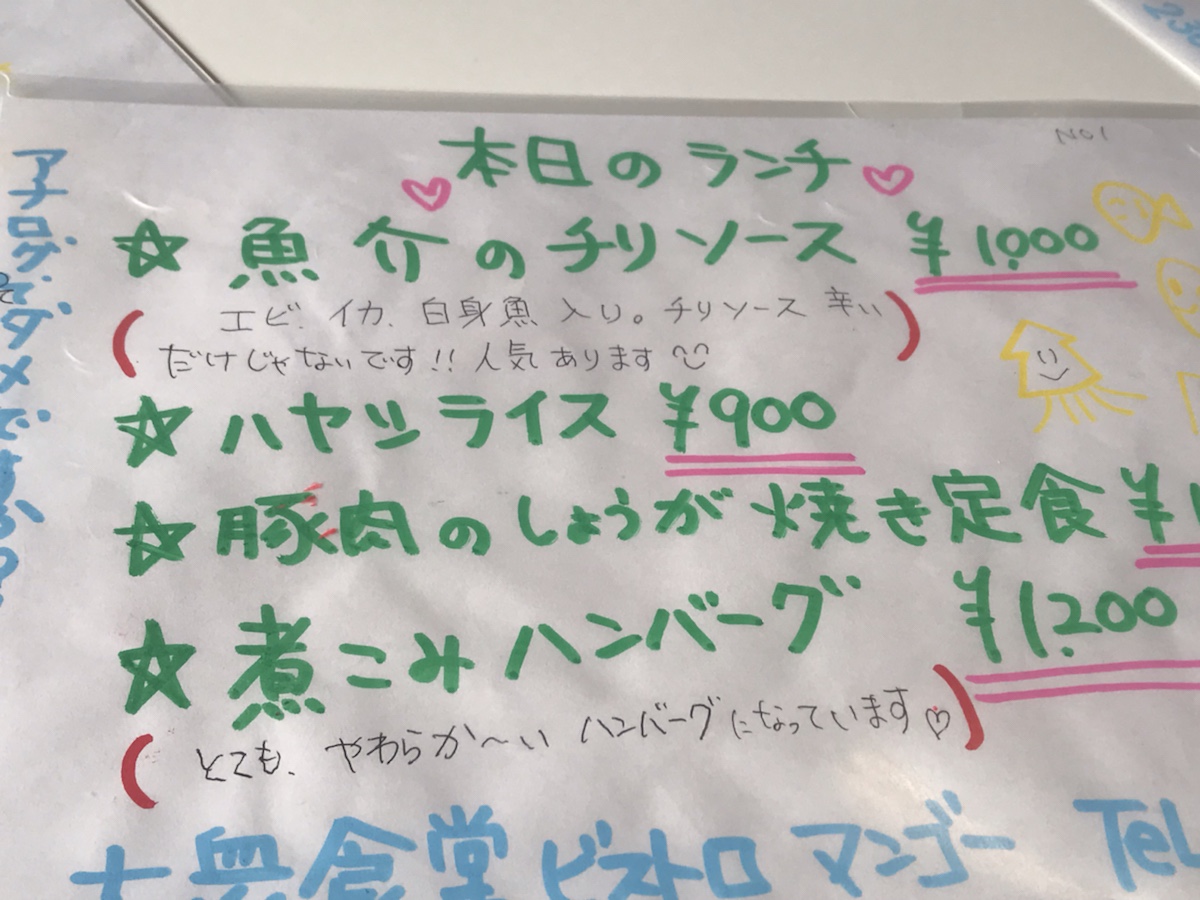 NO1
本日のランチ
☆ 魚介のチリソース ¥1,000
(エビ、イカ、白身魚入り。チリソース 辛い
だけじゃないです!! 人気あります)
☆ ハヤシライス ¥900
☆ 豚肉のしょうが焼き定食 ¥1
☆ 煮こみハンバーグ ¥1,200
(とても、やわらか〜い ハンバーグになっています♡)
大衆食堂ビストロ マンゴー TEL
アナログでダメですか?